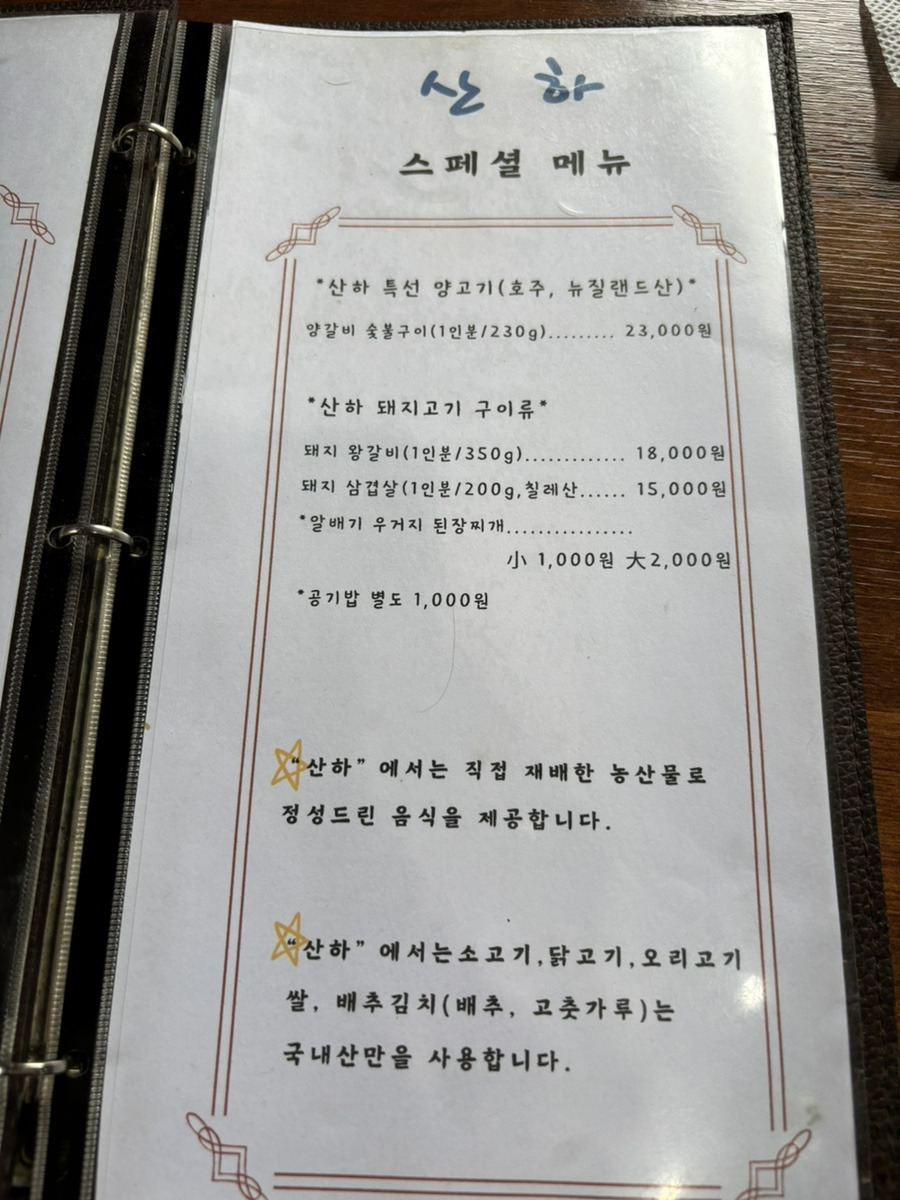 산 하
스페셜 메뉴
*산하 특선 양고기(호주, 뉴질랜드산)*
양갈비 숯불구이(1인분/230g)......... 23,000원
*산하 돼지고기 구이류*
돼지 왕갈비(1인분/350g)............. 18,000원
돼지 삼겹살(1인분/200g,칠레산...... 15,000원
*알배기 우거지 된장찌개................
小 1,000원 大2,000원
*공기밥 별도 1,000원
“산하” 에서는 직접 재배한 농산물로
정성드린 음식을 제공합니다.
“산하” 에서는소고기,닭고기,오리고기
쌀, 배추김치(배추, 고춧가루)는
국내산만을 사용합니다.